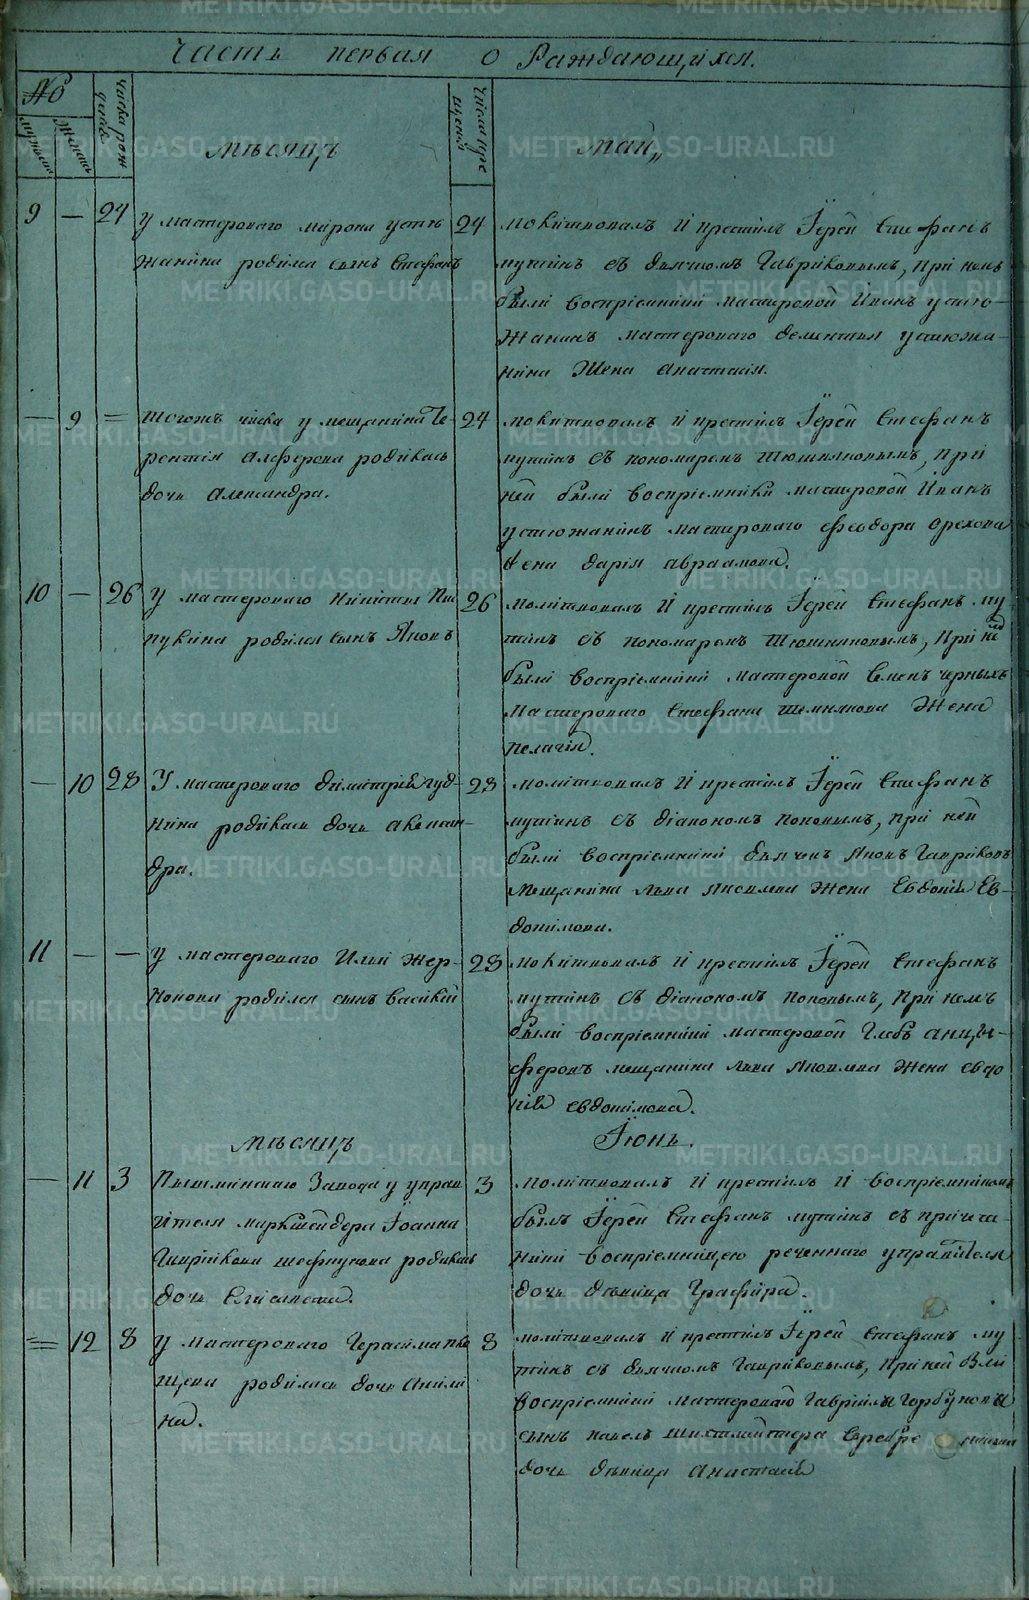 Часть первая о Раждающихся.
№
Мѣсяцъ
Май
9 — 24 У мастероваго Мирона Устю
жанина родился сынъ Стефанъ
24 молитвовалъ и крестилъ Іерей Стефанъ
Мутинъ съ дьячкомъ Гавриковымъ, при немъ
были воспріемники мастеровой Иванъ Устю-
жанинъ мастероваго Устюжа-
нина жена Анастасія.
— 9 = тогожъ числа у мещанина Те-
рентія Алферова родилась
дочь Александра.
24 молитвовалъ и крестилъ Іерей Стефанъ
Мутинъ съ пономаремъ, при
ней были воспріемники мастеровой Иванъ
Устюжанинъ мастероваго Феодора Орехова
жена Дарія Авраамова.
10 — 26 У мастероваго Никиты
родился сынъ Яковъ
26 молитвовалъ и крестилъ Іерей Стефанъ Му
тинъ съ пономаремъ, при
были воспріемники мастеровой Семенъ Черныхъ
мастероваго Стефана жена
Пелагія.
— 10 28 У мастероваго Димитрія
родилась дочь Алексан-
дра.
28 молитвовалъ и крестилъ Іерей Стефанъ
Мутинъ съ діакономъ Поповымъ, при ней
были воспріемники дьячекъ Яковъ Гавриковъ
мещанина Льва Яковлева жена Евдокія Ев-
докимова.
11 — — У мастероваго Ильи Жер-
нокова родился сынъ Василій
28 молитвовалъ и крестилъ Іерей Стефанъ
Мутинъ съ діакономъ Поповымъ, при немъ
были воспріемники мастеровой Глебъ Анцы-
феровъ мещанина Льва Яковлева жена Евдо
кія Евдокимова.
Мѣсяцъ
Іюнь.
— 11 3 Пышминскаго Завода у управ
ителя маркшейдера Іоанна
родилась
дочь Елисавета.
3 молитвовалъ и крестилъ и воспріемникомъ
былъ Іерей Стефанъ Мутинъ съ причета-
ми воспріемницею реченнаго управителя
дочь дѣвица Графира.
= 12 8 У мастероваго Герасима
родилась дочь Акили
на.
8 молитвовалъ и крестилъ Іерей Стефанъ Му
тинъ съ дьячкомъ Гавриковымъ, при ней были
воспріемники мастероваго Гавриила Горбунова
сынъ Павелъ шихтмейстера
дочь дѣвица Анастасія
METRIKI.GASO-URAL.RU